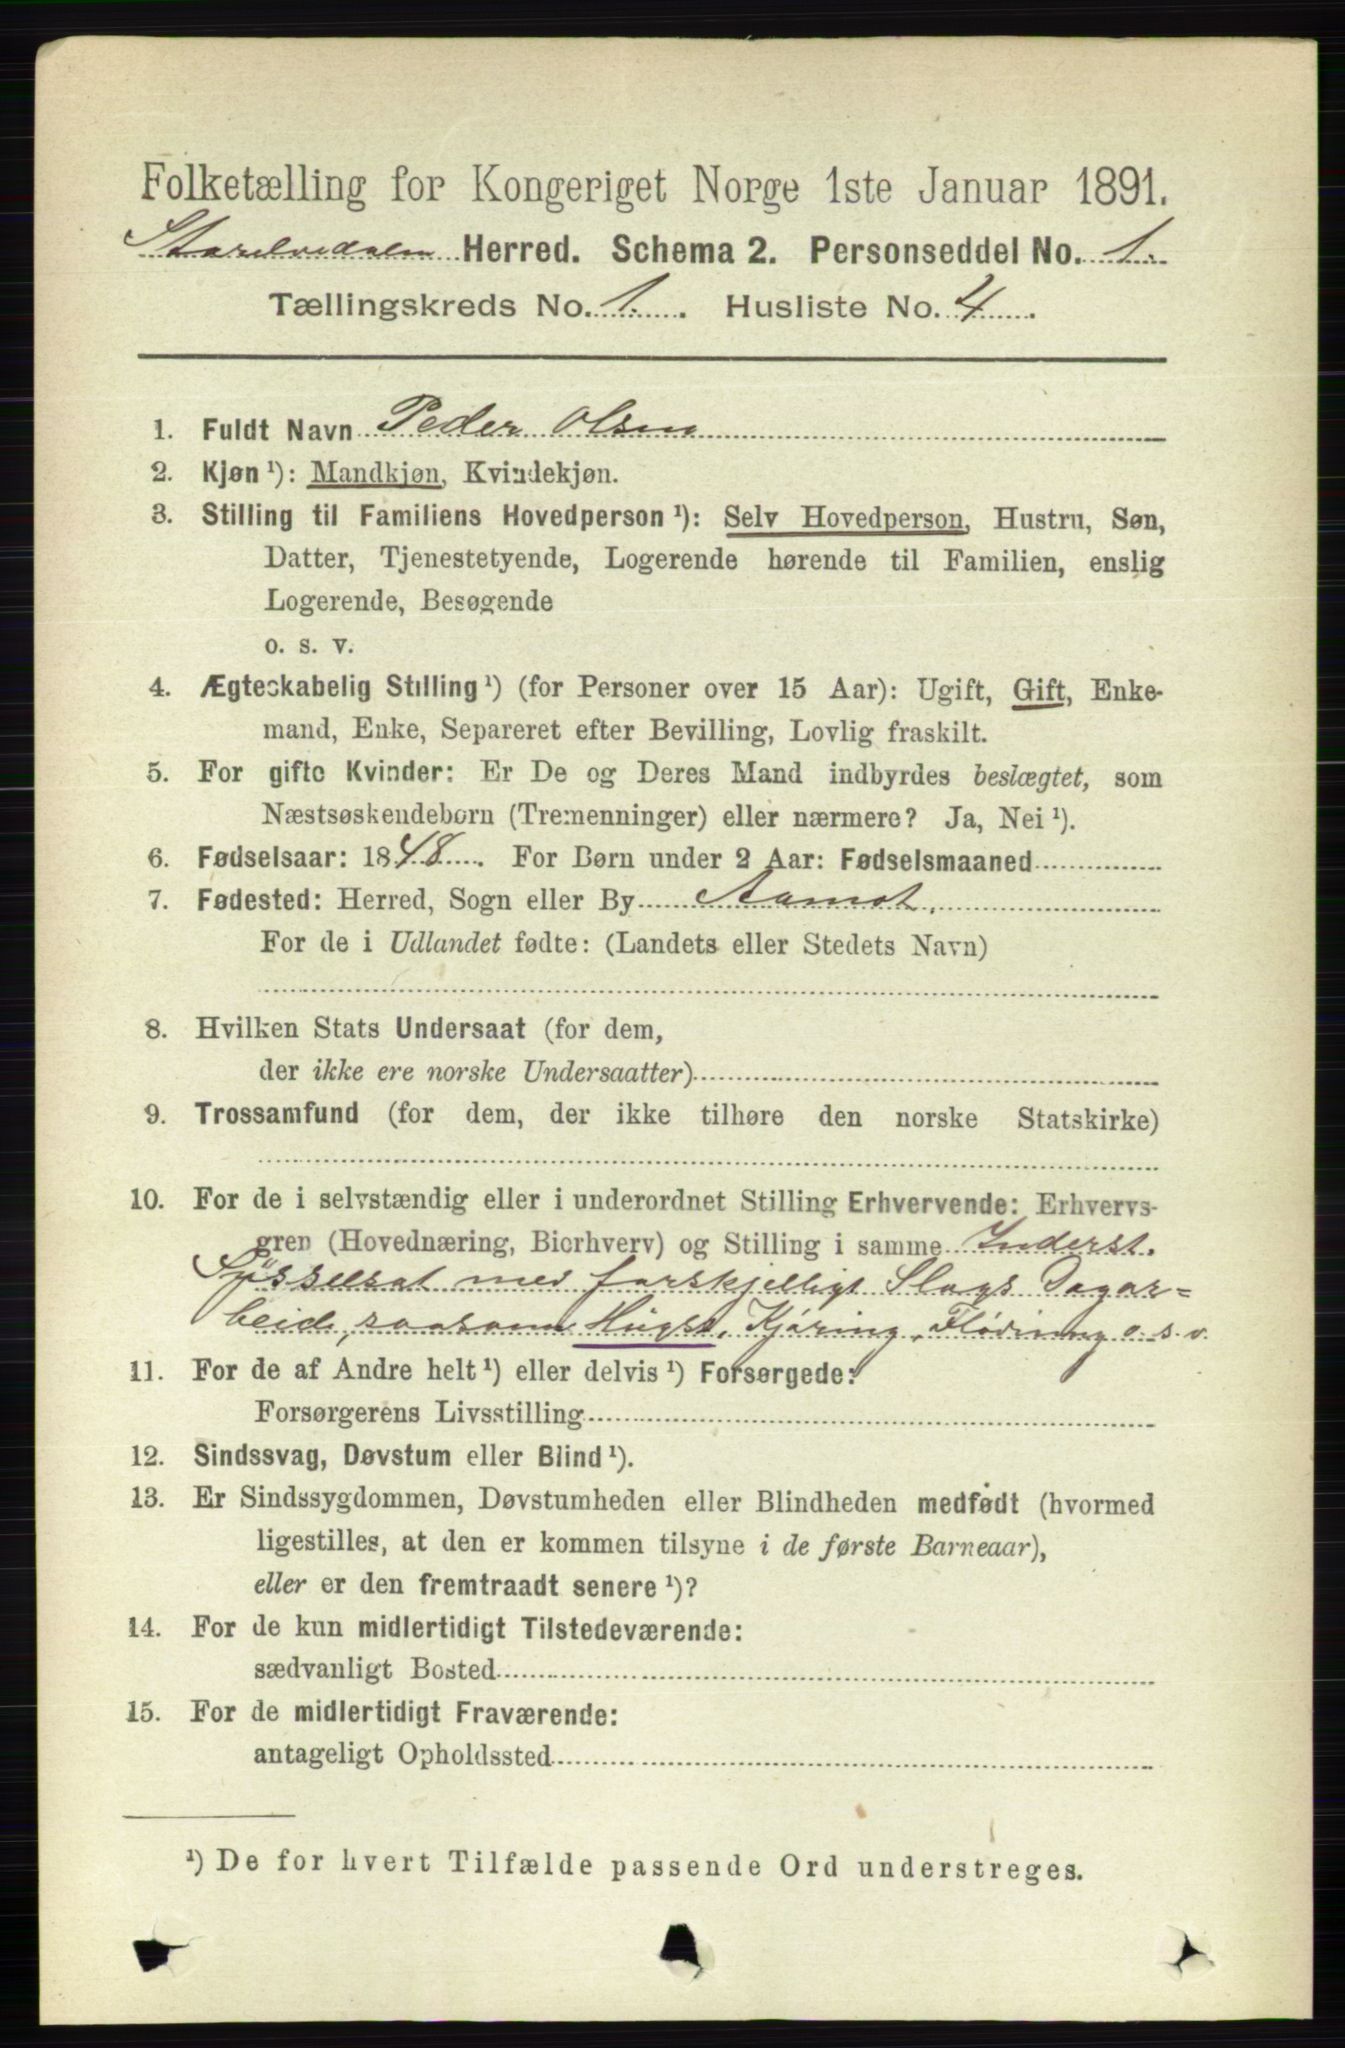 Folketælling for Kongeriget Norge 1ste Januar 1891.
Storelvedalen Herred. Schema 2. Personseddel No. 1.
Tællingskreds No. 1. Husliste No. 4.
1. Fuldt Navn Peder Olsen
2. Kjøn ¹): Mandkjøn, Kvindekjøn.
3. Stilling til Familiens Hovedperson ¹): Selv Hovedperson, Hustru, Søn,
Datter, Tjenestetyende, Logerende hørende til Familien, enslig
Logerende, Besøgende
o. s. v.
4. Ægteskabelig Stilling ¹) (for Personer over 15 Aar): Ugift, Gift, Enke-
mand, Enke, Separeret efter Bevilling, Lovlig fraskilt.
5. For gifte Kvinder: Er De og Deres Mand indbyrdes beslægtet, som
Næstsøskendebørn (Tremenninger) eller nærmere? Ja, Nei ¹).
6. Fødselsaar: 1848. For Børn under 2 Aar: Fødselsmaaned
7. Fødested: Herred, Sogn eller By Aamot.
For de i Udlandet fødte: (Landets eller Stedets Navn)
8. Hvilken Stats Undersaat (for dem,
der ikke ere norske Undersaatter)
9. Trossamfund (for dem, der ikke tilhøre den norske Statskirke)
10. For de i selvstændig eller i underordnet Stilling Erhvervende: Erhvervs-
gren (Hovednæring, Bierhverv) og Stilling i samme Inderst.
Sysselsat med forskjelligt Slags Dagar=
beid, saasom Hugst, Kjøring, Flødning o. s. v.
11. For de af Andre helt ¹) eller delvis ¹) Forsørgede:
Forsørgerens Livsstilling
12. Sindssvag, Døvstum eller Blind ¹).
13. Er Sindssygdommen, Døvstumheden eller Blindheden medfødt (hvormed
ligestilles, at den er kommen tilsyne i de første Barneaar),
eller er den fremtraadt senere ¹)?
14. For de kun midlertidigt Tilstedeværende:
sædvanligt Bosted
15. For de midlertidigt Fraværende:
antageligt Opholdssted
¹) De for hvert Tilfælde passende Ord understreges.